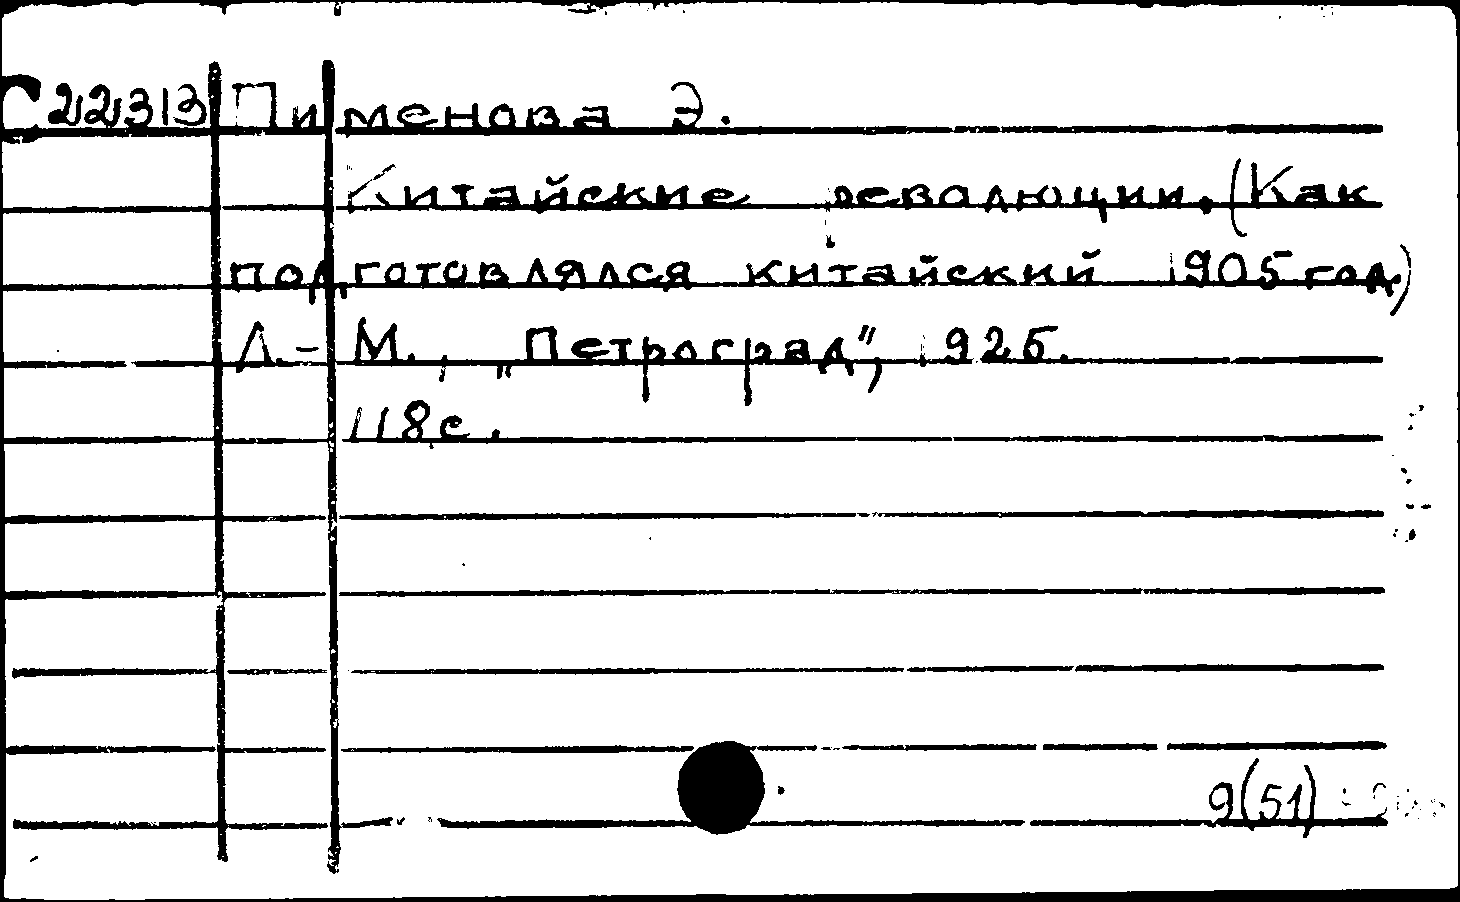 С22313 Пименова Э.
Китайские революции. (Как
подготовлялся китайский 1905 год)
Л.-М., „Петроград", 1925.
118 с.
9(51)